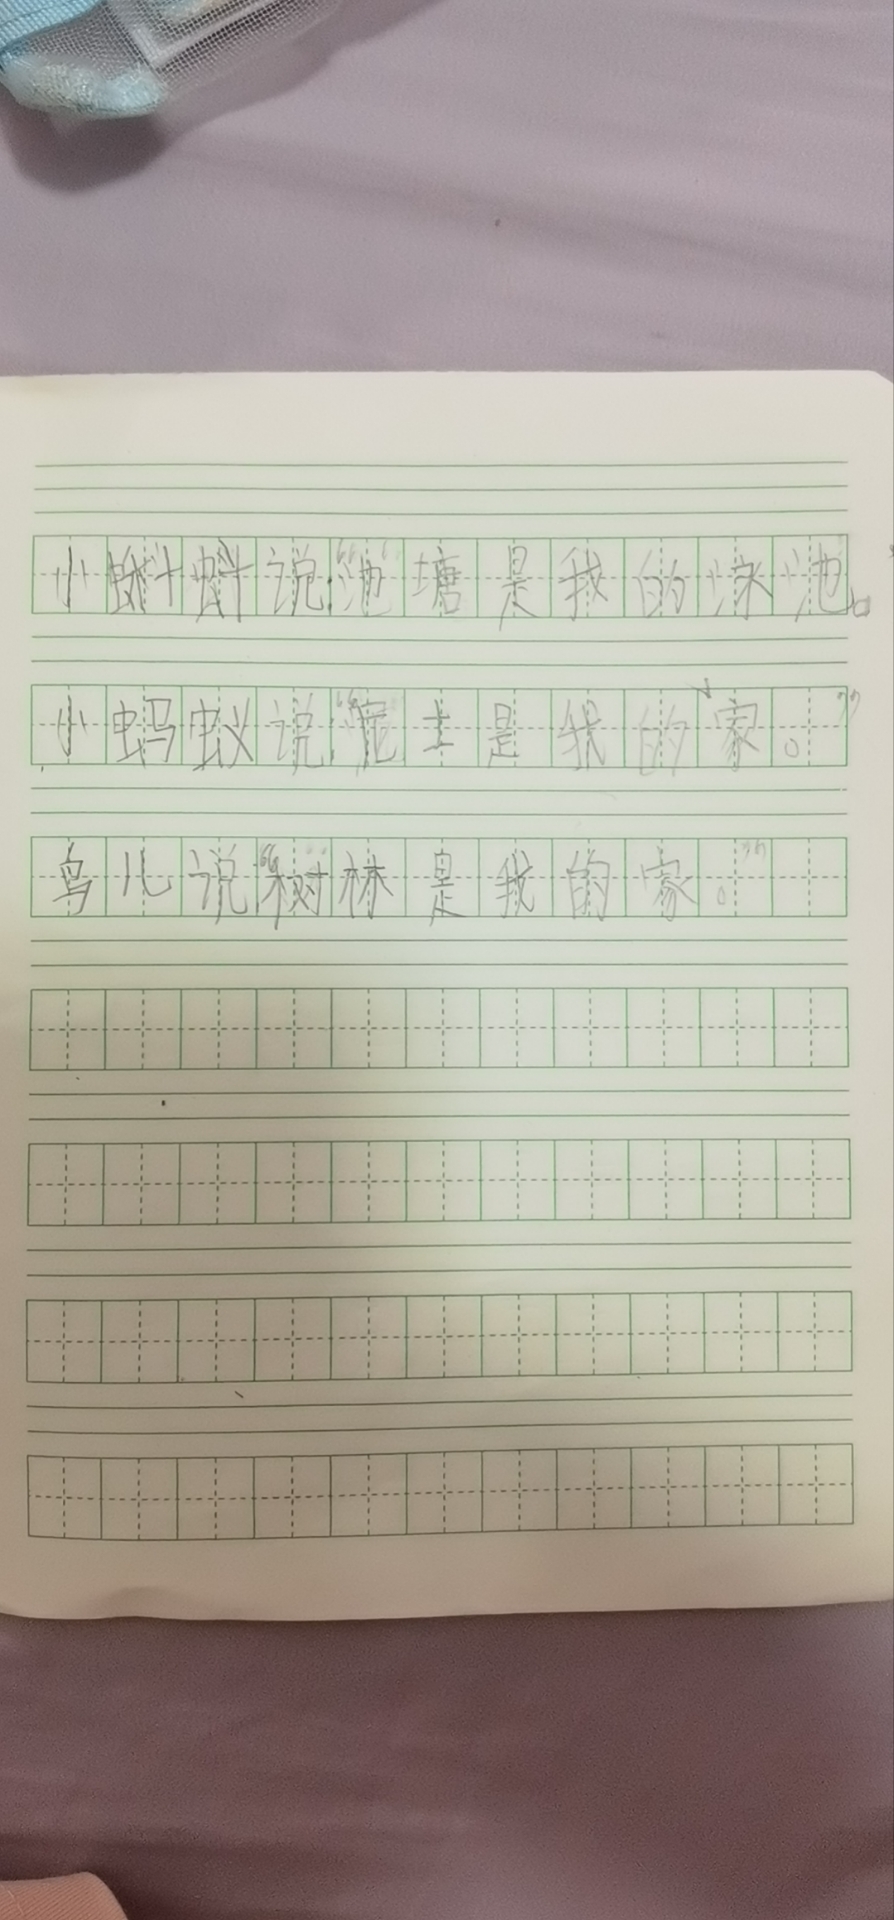 小蝌蚪说:“池塘是我的泳池。
小蚂蚁说:“泥土是我的家。”
鸟儿说“树林是我的家。”